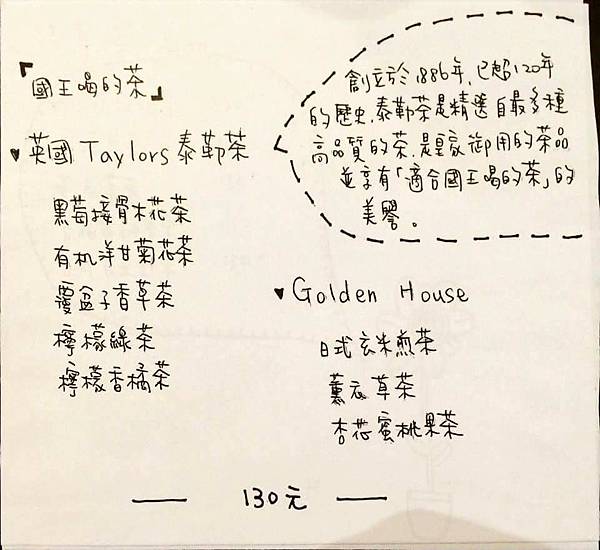 「國王喝的茶」
♥英國 Taylors 泰勒茶
黑莓接骨木花茶
有机洋甘菊花茶
覆盆子香草茶
檸檬綠茶
檸檬香橘茶
創立於1886年,已超120年
的歷史.泰勒茶是精選自最多種
高品質的茶.是皇家御用的茶品
並享有「適合國王喝的茶」的
美譽。
♥Golden House
日式玄米煎茶
薰衣草茶
杏花蜜桃果茶
— 130元 —